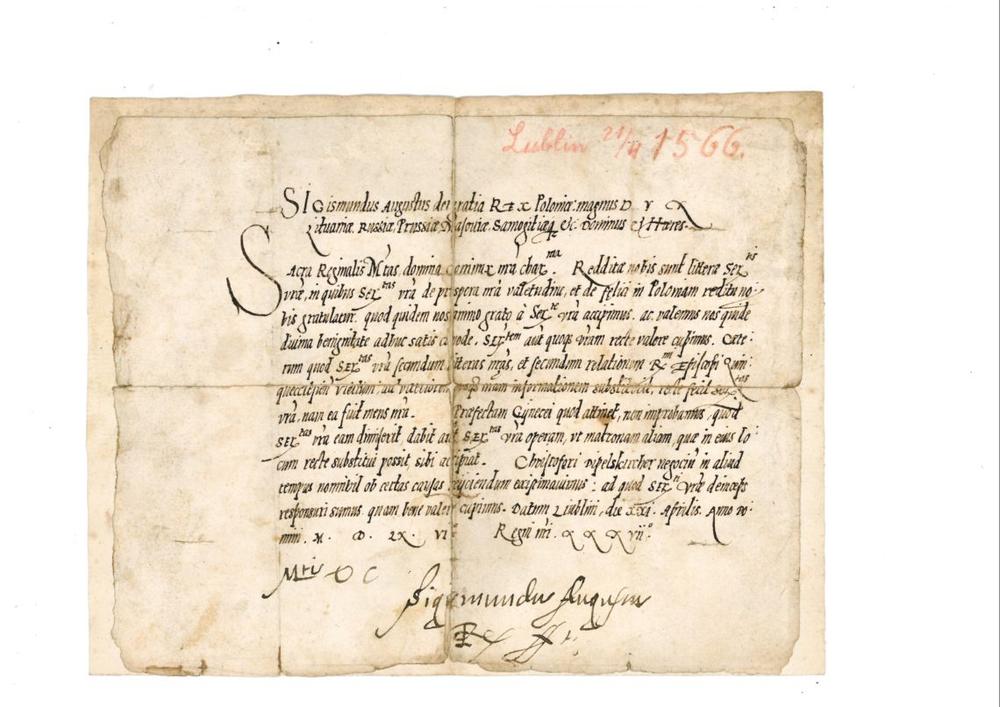 Lublin 21/4 1566.
Sigismundus Augustus dei gratia REX Poloniæ magnus D V X
Lituaniæ, Russiæ, Prussiæ Masoviæ, Samogitiæq, &c. Dominus & Hæres.
Sacra Reginalis Mtas, domina coniunx nra charma. Redditæ nobis sunt litteræ Sertis
vræ, in quibus Sertas vra de prospera nra valetudine, et de felici in Poloniam reditu no:
bis gratulatur. quod quidem nos animo grato à Serte vra accipimus. ac valemus nos quidem
diuina benignitate adhuc satis commode. Sertem aut quoq vram recte valere cupimus. Cæte:
rum quod Sertas vra secundum litteras nras, et secundum relationem Rmi Episcopi Quin:
queecclesien informationem recte fecit Sertas
vra, nam ea fuit mens nra. Præfectam Gynecei quod attinet, non improbamus, quod
Sertas vra eam dimiserit, dabit aut Sertas vra operam, vt matronam aliam, quæ in eius lo:
cum recte substitui possit, sibi accipiat. Christofori Pipelskircher negociu in aliud
tempus nonnihil ob certas causas reijciendum existimauimus: ad quod Serti vræ deinceps
responsuri sumus. quam bene valere cupimus. Datum Lublini, die XXI. Aprilis. Anno Do:
mini. M. D. LX. VIo Regni nri. XXXVIIo
Mtis V C
Sigismundus Augustus
Rex